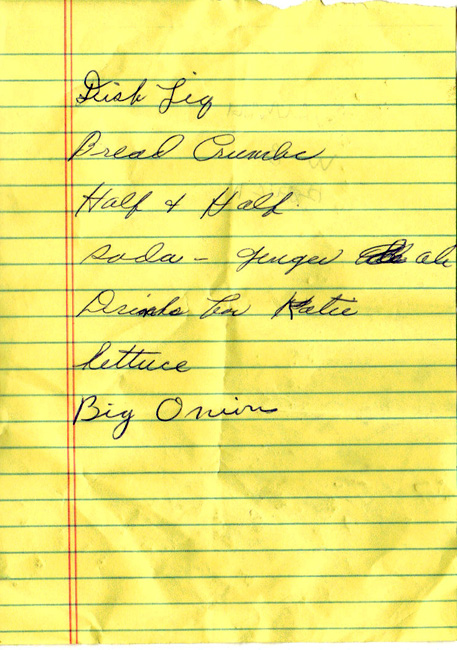 Dish Liq
Bread Crumbs
Half & Half
soda - ginger ale
Drinks for Katie
lettuce
Big Onion